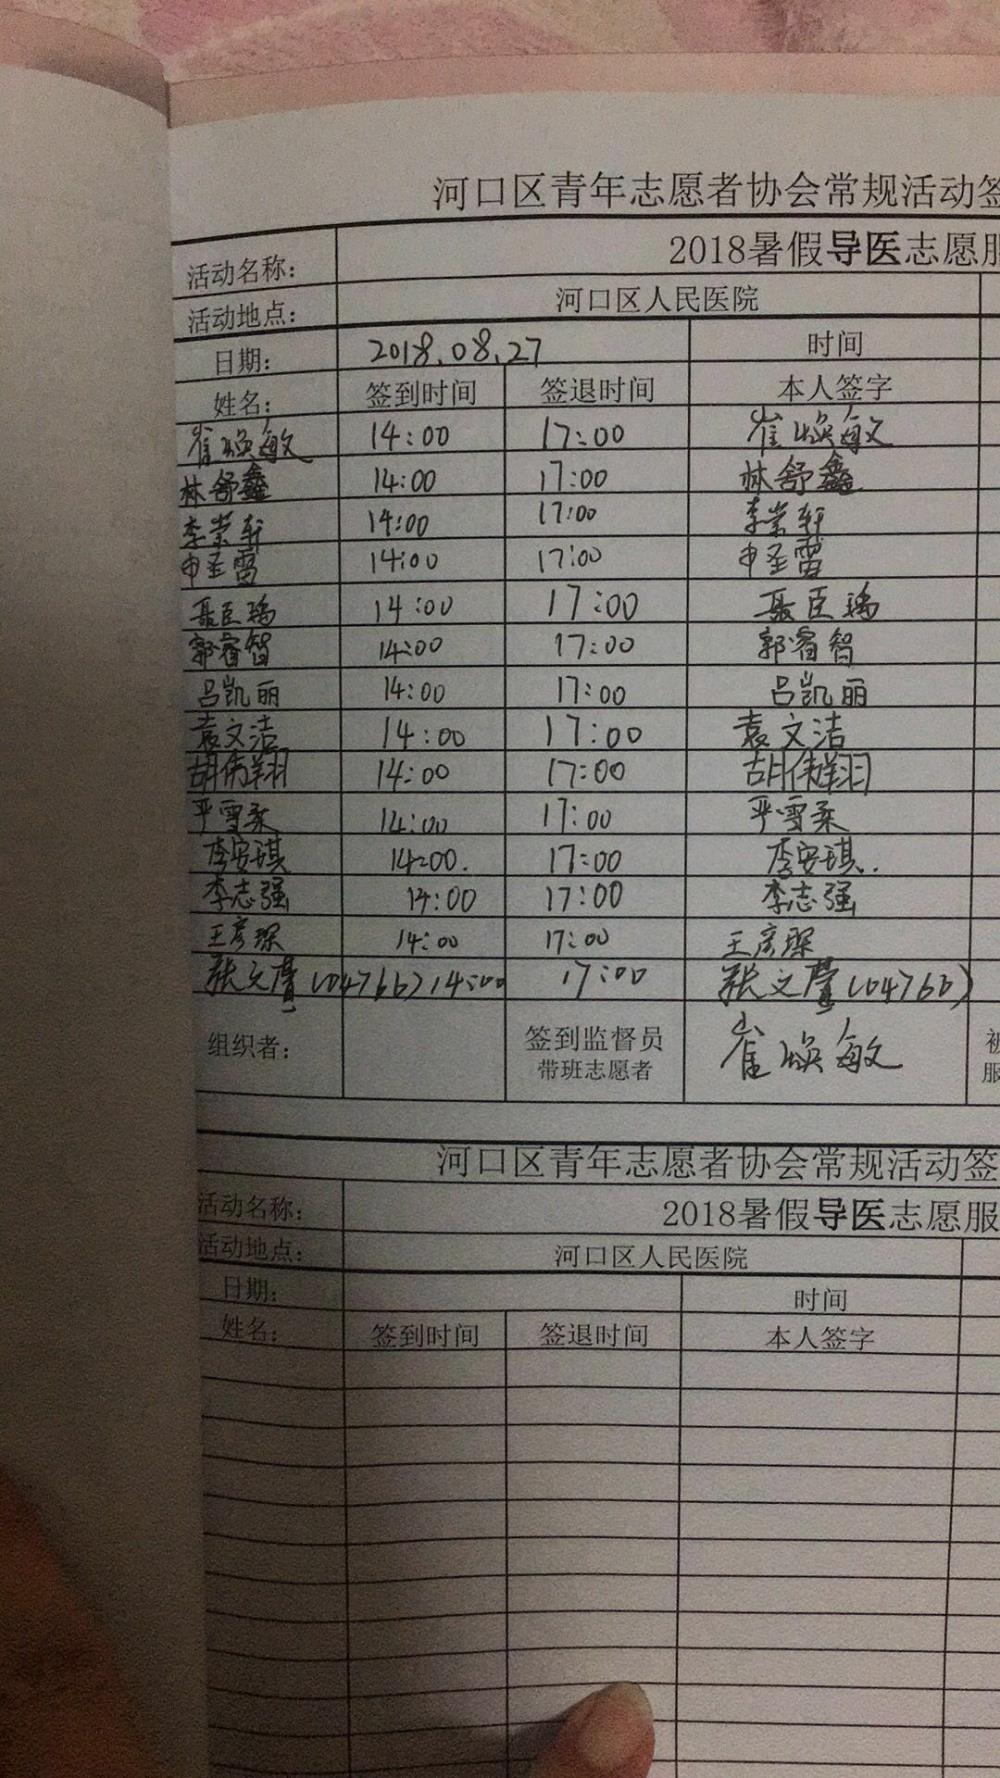 河口区青年志愿者协会常规活动签
活动名称： 2018暑假导医志愿服
活动地点： 河口区人民医院
日期： 2018.08.27 时间
姓名： 签到时间 签退时间 本人签字
崔焕敏 14:00 17:00 崔焕敏
林舒鑫 14:00 17:00 林舒鑫
李崇轩 14:00 17:00 李崇轩
申圣雷 14:00 17:00 申圣雷
聂臣瑀 14:00 17:00 聂臣瑀
郭睿智 14:00 17:00 郭睿智
吕凯丽 14:00 17:00 吕凯丽
袁文洁 14:00 17:00 袁文洁
胡伟翔 14:00 17:00 胡伟翔
严雪柔 14:00 17:00 严雪柔
李安琪 14:00. 17:00 李安琪.
李志强 14:00 17:00 李志强
王彦琛 14:00 17:00 王彦琛
张文 (04766) 14:00 17:00 张文 (04766)
组织者： 签到监督员 崔焕敏 被
带班志愿者 服
河口区青年志愿者协会常规活动签
活动名称： 2018暑假导医志愿服
活动地点： 河口区人民医院
日期： 时间
姓名： 签到时间 签退时间 本人签字